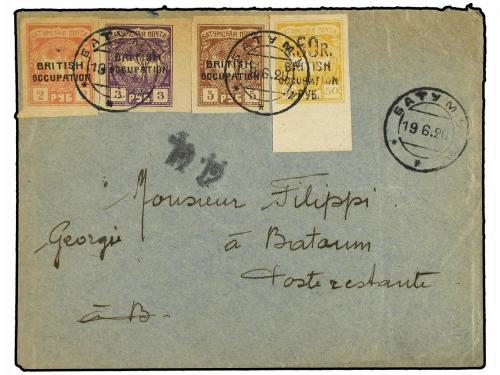 БАТУМСКАЯ ПОЧТА БАТУМСКАЯ ПОЧТА
BRITISH OCCUPATION
2 РУБ
BRITISH OCCUPATION
3 РУБ 3
BRITISH OCCUPATION
5 РУБ 5
50R.
BRITISH
OCCUPATION
РУБ.
50
БАТУМ
19
БАТУМ
6.20
БАТУМ
19 6.20
Monsieur Filippi
Georgie à Batoum
Poste restante
à B.